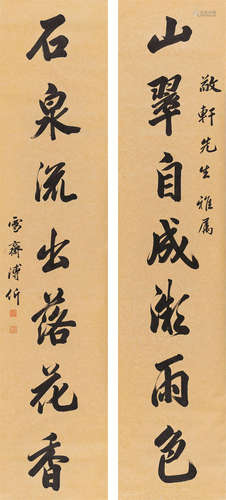 敬軒先生雅屬
山翠自成微雨色
石泉流出落花香
雪齋溥伒